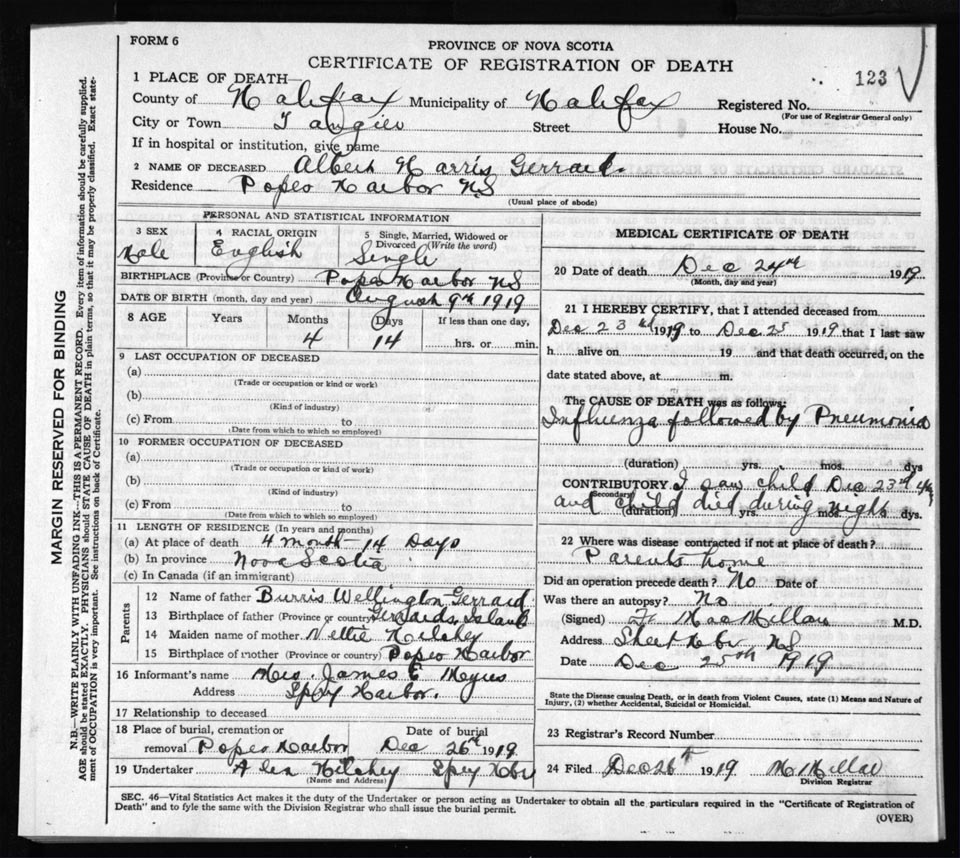 FORM 6
PROVINCE OF NOVA SCOTIA
CERTIFICATE OF REGISTRATION OF DEATH
123
1 PLACE OF DEATH—
County of Halifax Municipality of Halifax Registered No.
(For use of Registrar General only)
City or Town Tangier Street House No.
If in hospital or institution, give name
2 NAME OF DECEASED Albert Harris Gerrard.
Residence Popes Harbor NS
(Usual place of abode)
PERSONAL AND STATISTICAL INFORMATION
3 SEX 4 RACIAL ORIGIN 5 Single, Married, Widowed or Divorced (Write the word)
Male English Single
BIRTHPLACE (Province or Country) Popes Harbor NS
DATE OF BIRTH (month, day and year) August 9th 1919
8 AGE Years Months Days If less than one day,
4 14 hrs. or min.
9 LAST OCCUPATION OF DECEASED
(a)
(Trade or occupation or kind or work)
(b)
(Kind of industry)
(c) From to
(Date from which to which so employed)
10 FORMER OCCUPATION OF DECEASED
(a)
(Trade or occupation or kind of work)
(b)
(Kind of industry)
(c) From to
(Date from which to which so employed)
11 LENGTH OF RESIDENCE (In years and months)
(a) At place of death 4 month - 14 Days
(b) In province Nova Scotia
(c) In Canada (if an immigrant)
Parents
12 Name of father Burris Wellington Gerrard
13 Birthplace of father (Province or country) Gerrards Island
14 Maiden name of mother Nellie Hilchey
15 Birthplace of mother (Province or country) Popes Harbor
16 Informant's name Mrs. James E Meyers
Address Spry Harbor.
17 Relationship to deceased
18 Place of burial, cremation or removal Popes Harbor Date of burial Dec 26th 1919
19 Undertaker Hilchey Spry Hbr
(Name and Address)
MEDICAL CERTIFICATE OF DEATH
20 Date of death Dec 24th 1919
(Month, day and year)
21 I HEREBY CERTIFY, that I attended deceased from
Dec 23rd 1919 to Dec 25 1919 that I last saw
h alive on 19 and that death occurred, on the
date stated above, at m.
The CAUSE OF DEATH was as follows:
Influenza followed by Pneumonia
(duration) yrs. mos. dys
CONTRIBUTORY I saw child Dec 23rd
(Secondary)
and child died during night
(duration) yrs. mos. dys.
22 Where was disease contracted if not at place of death?
Parents home
Did an operation precede death? No Date of
Was there an autopsy? No
(Signed) MacMillan M.D.
Address Sheet Hbr. NS
Date Dec 25th 1919
State the Disease causing Death, or in death from Violent Causes, state (1) Means and Nature of
Injury, (2) whether Accidental, Suicidal or Homicidal.
23 Registrar's Record Number
24 Filed Dec 26th 1919
Division Registrar
SEC. 46—Vital Statistics Act makes it the duty of the Undertaker or person acting as Undertaker to obtain all the particulars required in the "Certificate of Registration of
Death" and to fyle the same with the Division Registrar who shall issue the burial permit.
(OVER)
MARGIN RESERVED FOR BINDING
N.B.—WRITE PLAINLY WITH UNFADING INK—THIS IS A PERMANENT RECORD. Every item of information should be carefully supplied.
AGE should be stated EXACTLY. PHYSICIANS should STATE CAUSE OF DEATH in plain terms, so that it may be properly classified. Exact state-
ment of OCCUPATION is very important. See instructions on back of Certificate.